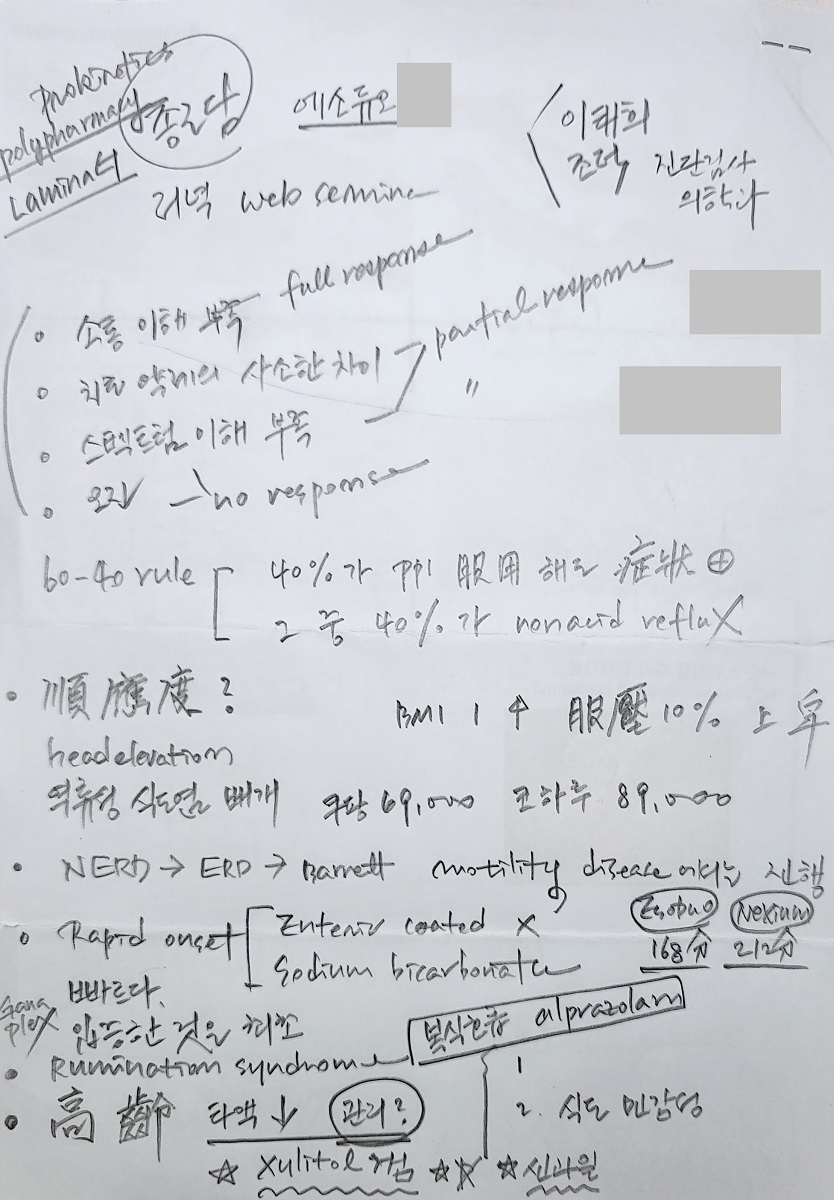 prokinetics
polypharmacy
Laminar
종근당
에소듀오
이태희
조덕, 진단검사
의학과
저녁 web seminar
소통 이해 부족 full response
치료 약제의 사소한 차이 partial response
스펙트럼 이해 부족 〃
오진 no response
60-40 rule 40%가 PPI 服用 해도 症狀 ⊕
그 중 40%가 nonacid reflux
順應度?
BMI 1 ↑ 腹壓 10% 上昇
head elevation
역류성 식도염 베개 쿠팡 69,000 코하루 89,000
NERD → ERD → Barrett motility disease 에서는 진행
Rapid onset Enteric coated X Esoduo Nexium
Sodium bicarbonate 168分 212分
빠르다.
plex 입증한 것을 최초
Rumination syndrome 복식호흡 alprazolam
1
高齡 타액 ↓ 관리? 2. 식도 민감성
☆ Xylitol 껌 ☆☆ ☆ 신과일